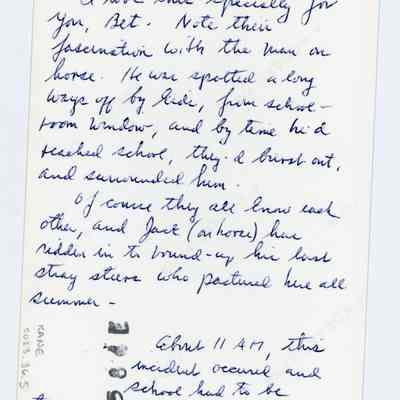 I have this specially for
you, Bet. Note their
fascination with the man on
horse. He was spotted a long
ways off by kids, from school-
room window, and by time he'd
reached school, they'd burst out,
and surrounded him.
Of course they all know each
other, and Jack (on horse) has
ridden in to round-up his last
stray steers who pastured here all
summer -
About 11 AM, this
incident occured and
school had to be
KANE